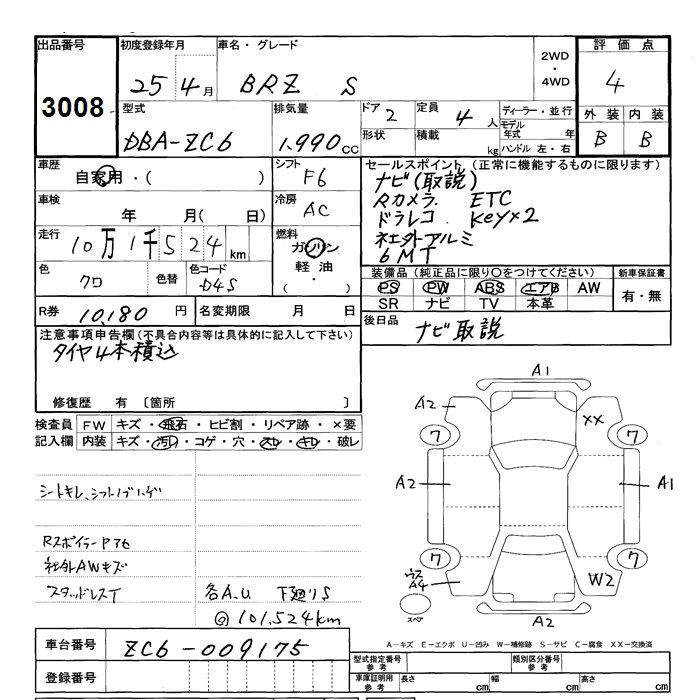 出品番号 初度登録年月 車名・グレード 2WD・4WD 評価点
3008 25 4月 BRZ S 4
型式 排気量 ドア 2 定員 4人 ディーラー・並行 外装 内装
DBA-ZC6 1.990cc 形状 積載 kg モデル年式 年 ハンドル 左・右 B B
車歴 シフト セールスポイント(正常に機能するものに限ります)
自家用・( ) F6 ナビ(取説)
車検 年 月( 日) 冷房 AC Rカメラ. ETC
ドラレコ. Key×2
走行 10万1千524km 燃料 ガソリン 軽油 ( ・ ) 社外アルミ
6MT
色 クロ 色替 色コード D4S 装備品(純正品に限り○をつけてください) 新車保証書
PS PW ABS エアB AW 有・無
SR ナビ TV 本革
R券 10,180円 名変期限 月 日 後日品 ナビ取説
注意事項申告欄(不具合内容等は具体的に記入して下さい)
タイヤ4本積込
修復歴 有 〔箇所 〕
検査員記入欄 FW キズ・飛石・ヒビ割・リペア跡・×要
内装 キズ・汚れ・コゲ・穴・スレ・キレ・破レ
シートキレ、シフトノブハゲ
Rスポイラーアセ
社外AWキズ
スタッドレスT 各A.U 下廻りS
@101.524km
A1
A2 XX
7 7
A2 A1
7 7
ウス A4 W2
スペア A2
A-キズ E-エクボ U-凹み W-補修跡 S-サビ C-腐食 XX-交換済
車台番号 ZC6-009175
型式指定番号 参考 類別区分番号 参考
登録番号 車庫証明用 参考 長さ cm 幅 cm 高さ cm